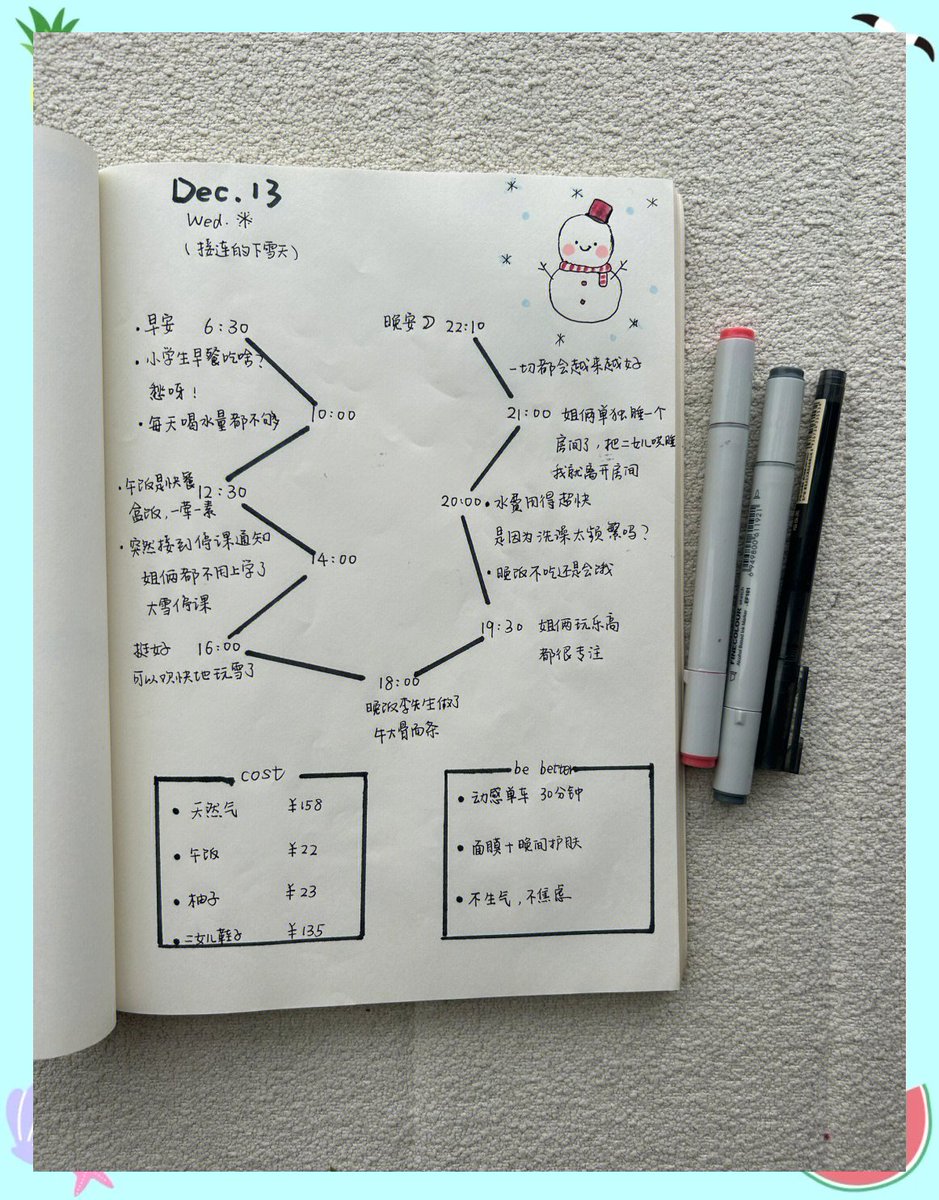 Dec.13
Wed.
(接连的下雪天)
·早安 6:30
·小学生早餐吃啥?
愁呀!
·每天喝水量都不够
10:00
·午饭是快餐
盒饭,一荤一素
12:30
·突然接到停课通知
姐俩都不用上学了
大雪停课
14:00
挺好 16:00
可以欢快地玩雪了
18:00
晚饭李先生做了
牛大骨面条
19:30 姐俩玩乐高
都很专注
20:00 ·水费用得超快
是因为洗澡太频繁吗?
·晚饭不吃还是会饿
21:00 姐俩单独睡一个
房间了,把二女儿哄睡
我就离开房间
晚安 22:10
一切都会越来越好
cost
·天然气 ¥158
·午饭 ¥22
·柚子 ¥23
·二女儿鞋子 ¥135
be better
·动感单车 30分钟
·面膜+晚间护肤
·不生气,不焦虑
FINECOLOUR
EF101
6949800611921